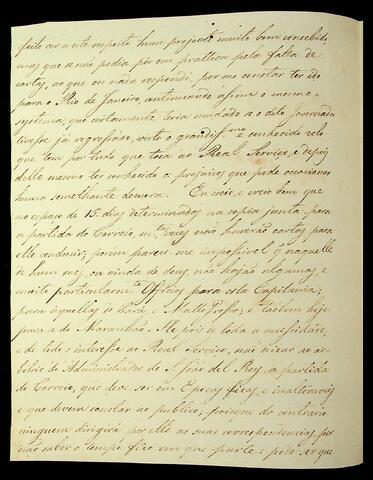 feito ver a este respeito hum projecto muito bem concebido,
mas que se não podia pôr em pratica pela falta de
cartas, ao que eu nada respondi, por me constar ter ido
para o Rio de Janeiro, continuando assim o mesmo
systema, que certamente teria mudado se o dito Governador
tivesse já regressado, visto o grandissmo e conhecido zelo
que tem por tudo que toca ao Real Serviço, e depois
delle mesmo ter conhecido os prejuizos que pode occasionar
huma semelhante demora. Eu creio, e creio bem que
no espaço de 15 dias determinados na copia junta, para
a partida do Correio, mtas vezes não haverão cartas para
elle conduzir; porem parece-me impossivel q naquelle
de hum mez, ou ainda de dous, não hajão algumas, e
muito particularmte Officios para esta Capitania;
para aquellas do Pará, e Matto Grosso; e tãobem hoje
para a de Maranhão. Me pois de toda a necessidade,
e de todo o interesse ao Real Serviço, não deixar ao ar-
bitrio do Administrador de S. João del Rey, a partida
do Correio, que deve ser em Epocas fixas, e inalteraveis
e que devem constar ao publico; porque do contrario
ninguem dirigirá por elle as suas correspondencias, por
não saber o tempo fixo em que parte: pelo ser que